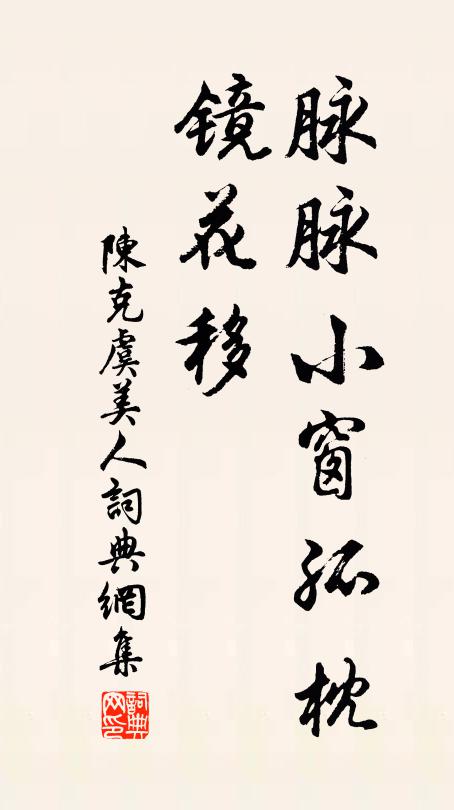 脉脉小窗孤枕
镜花移
陳克虞美人詞典網集
詞典网印